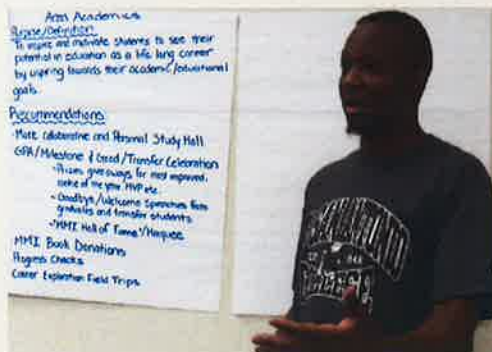 Area Academics
Purpose/Definition
To inspire and motivate students to see their
potential in education as a life long career
by uspring towards their academic/educational
goals.
Recommendations
·More collaborative and Personal Study Hall
GPA/Milestone & Grad/Transfer Celebration
·Prizes giveaways for most improved,
rookie of the year, MVP etc.
·Goodbye/Welcome Speeches from
graduates and transfer students
·"MMI Hall of Fame"/Marquee
MMI Book Donations
Progress Checks
Career Exploration Field Trips